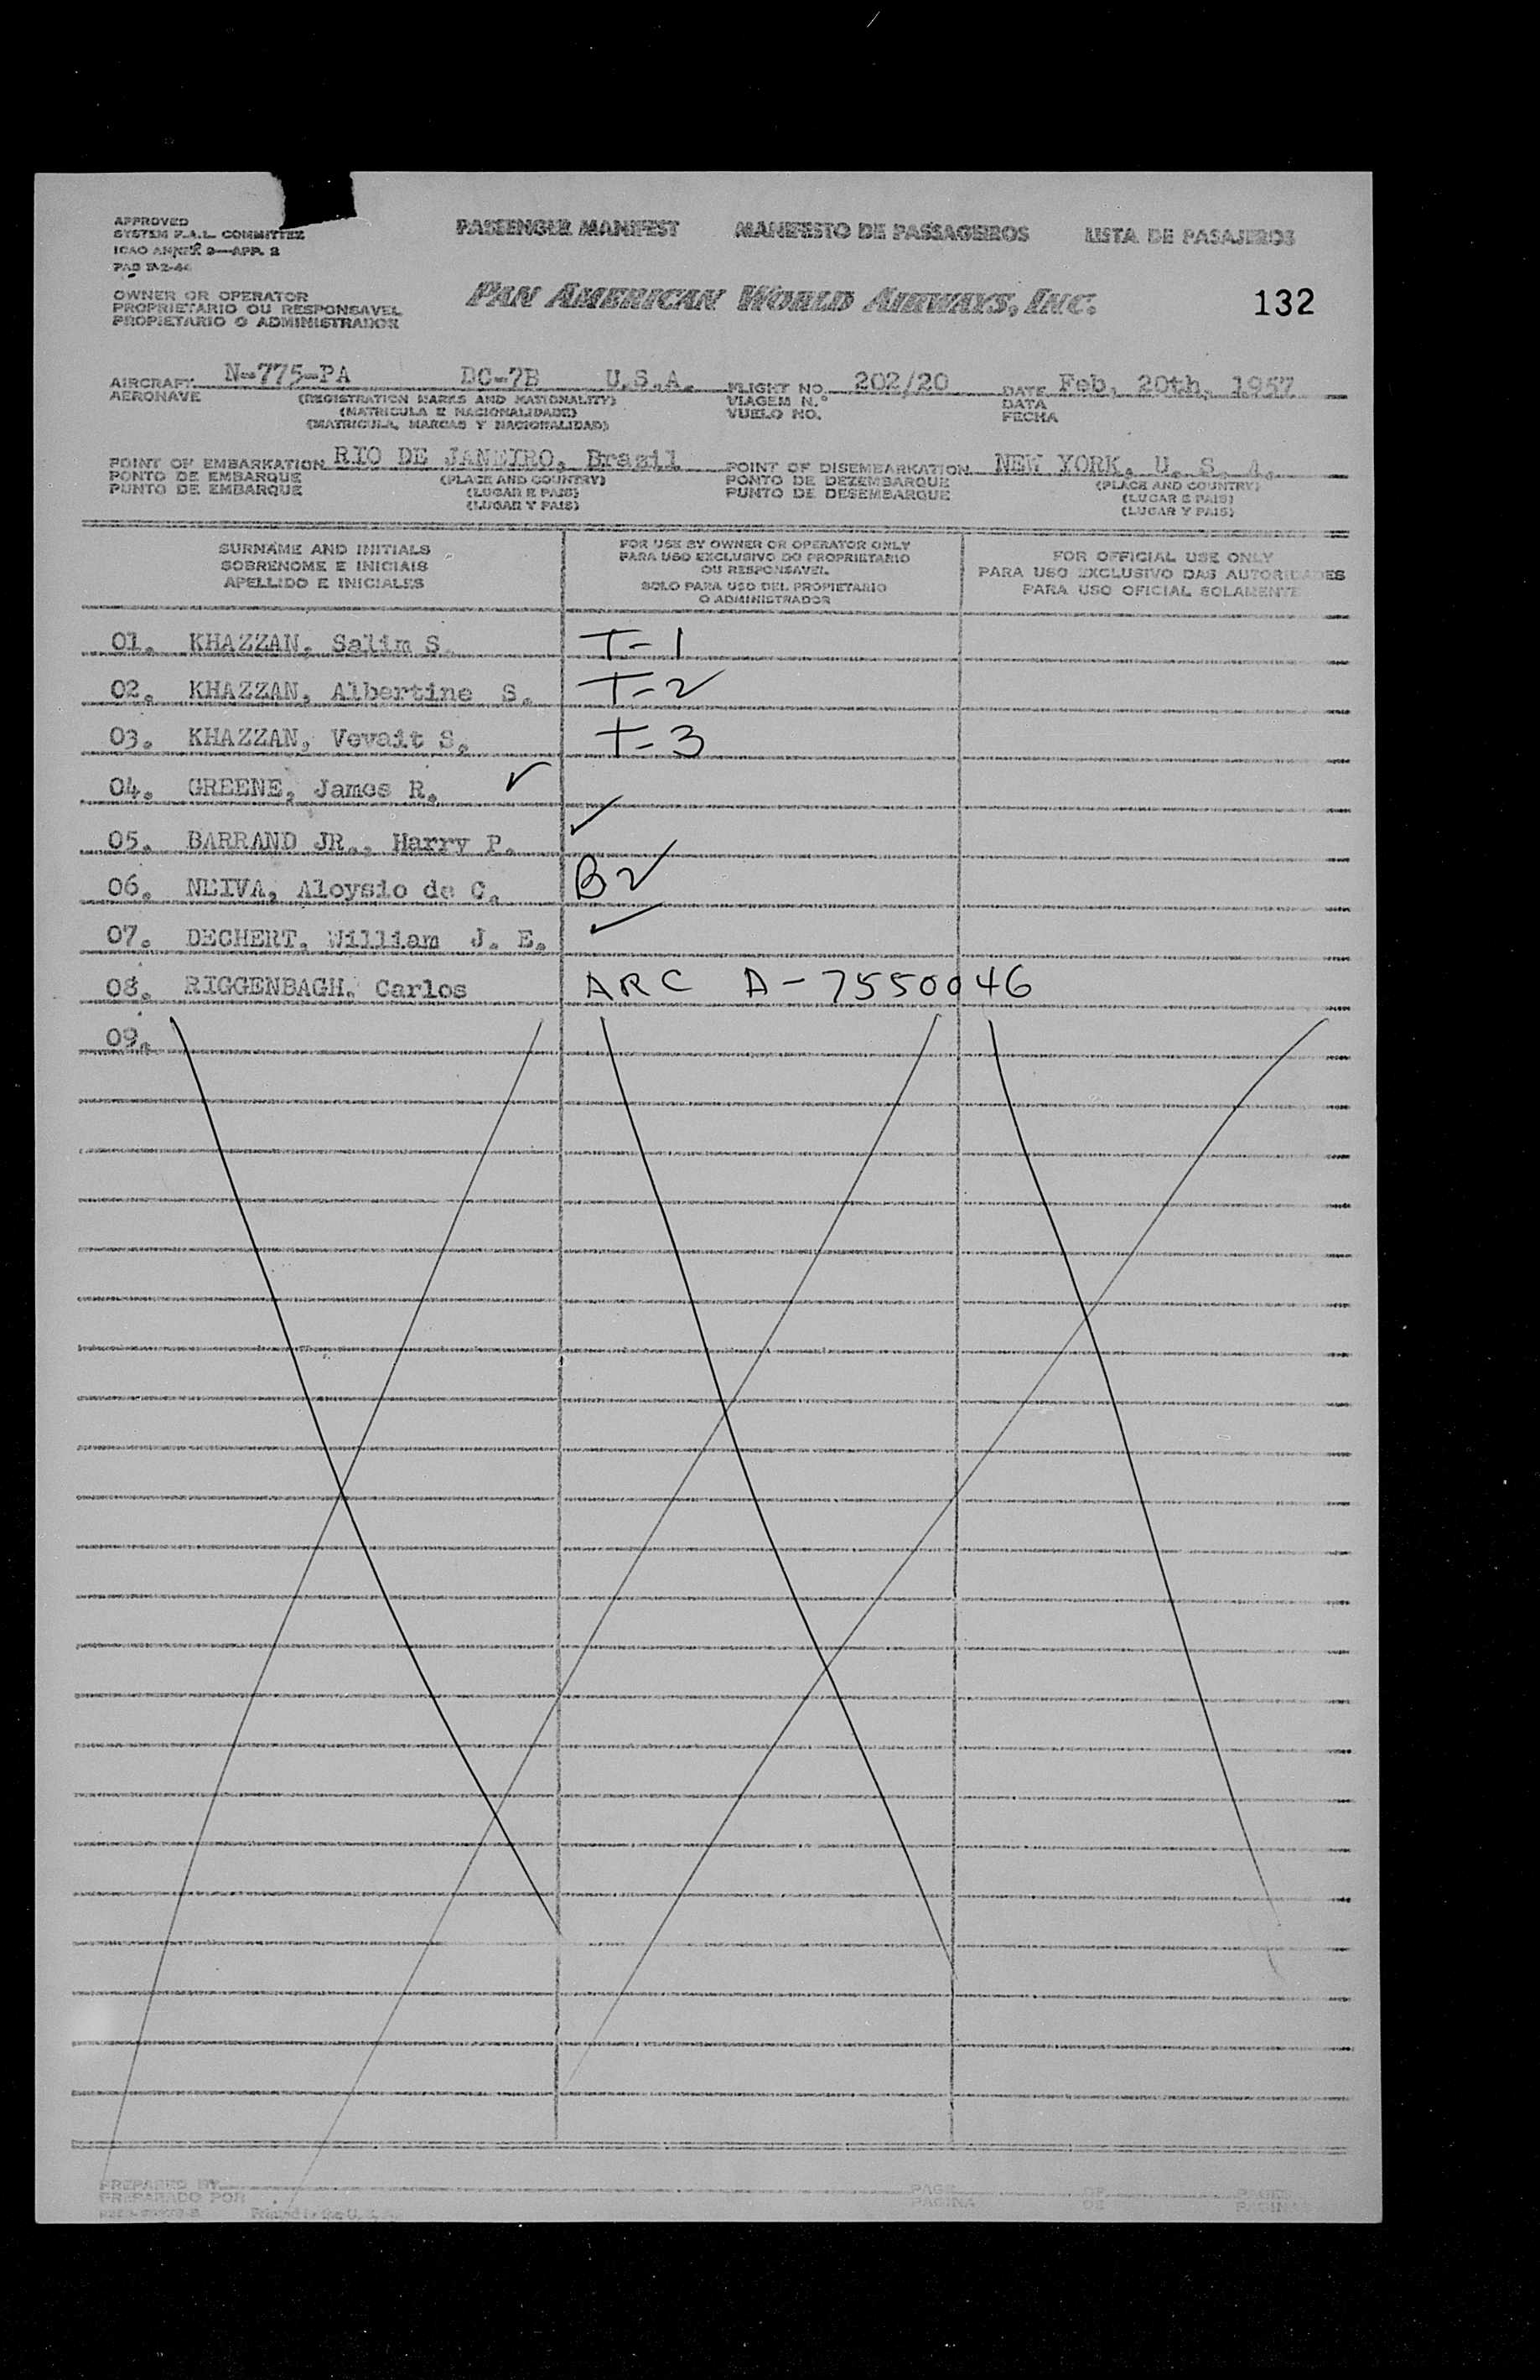 APPROVED
SYSTEM F.A.L. COMMITTEE
ICAO ANNEX 9—APP. 2
PASSENGER MANIFEST MANIFESTO DE PASSAGEIROS LISTA DE PASAJEROS
OWNER OR OPERATOR
PROPRIETARIO OU RESPONSAVEL
PROPIETARIO O ADMINISTRADOR
PAN AMERICAN WORLD AIRWAYS, INC.
132
AIRCRAFT N-775-PA DC-7B U.S.A. FLIGHT NO. 202/20 DATE Feb, 20th, 1957
AERONAVE (REGISTRATION MARKS AND NATIONALITY) VIAGEM N.º DATA
(MATRICULA E NACIONALIDADE) VUELO NO. FECHA
(MATRICULA, MARCAS Y NACIONALIDAD)
POINT OF EMBARKATION RIO DE JANEIRO, Brazil POINT OF DISEMBARKATION NEW YORK, U. S. A.
PONTO DE EMBARQUE (PLACE AND COUNTRY) PONTO DE DEZEMBARQUE (PLACE AND COUNTRY)
PUNTO DE EMBARQUE (LUGAR E PAIS) PUNTO DE DESEMBARQUE (LUGAR E PAIS)
(LUGAR Y PAIS) (LUGAR Y PAIS)
SURNAME AND INITIALS
SOBRENOME E INICIAIS
APELLIDO E INICIALES
FOR USE BY OWNER OR OPERATOR ONLY
PARA USO EXCLUSIVO DO PROPRIETARIO
OU RESPONSAVEL
SOLO PARA USO DEL PROPIETARIO
O ADMINISTRADOR
FOR OFFICIAL USE ONLY
PARA USO EXCLUSIVO DAS AUTORIDADES
PARA USO OFICIAL SOLAMENTE
01. KHAZZAN, Salim S. T-1
02. KHAZZAN, Albertine S. T-2
03. KHAZZAN, Vevait S. T-3
04. GREENE, James R. ✓
05. BARRAND JR., Harry P. ✓
06. NEIVA, Aloysio de C. B2
07. DECHERT, William J. E. ✓
08. RIGGENBAGH, Carlos ARC A-7550046
09.
PREPARED BY PAGE OF PAGES
PREPARADO POR PAGINA DE PAGINAS